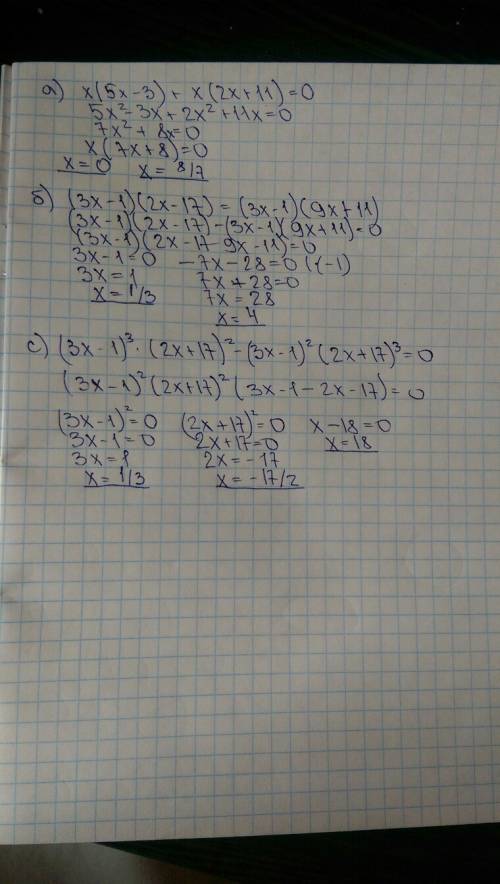 а) x(5x-3) + x(2x+11)=0
5x²-3x+2x²+11x=0
7x²+8x=0
x(7x+8)=0
x=0 x= 8/7
б) (3x-1)(2x-17)=(3x-1)(9x+11)
(3x-1)(2x-17)-(3x-1)(9x+11)=0
(3x-1)(2x-17-9x-11)=0
3x-1=0 -7x-28=0 (·(-1)
3x=1 7x+28=0
x=1/3 7x=28
x=4
с) (3x-1)³·(2x+17)²-(3x-1)²(2x+17)³=0
(3x-1)²(2x+17)²(3x-1-2x-17)=0
(3x-1)²=0 (2x+17)²=0 x-18=0
3x-1=0 2x+17=0 x=18
3x=1 2x=-17
x=1/3 x=-17/2